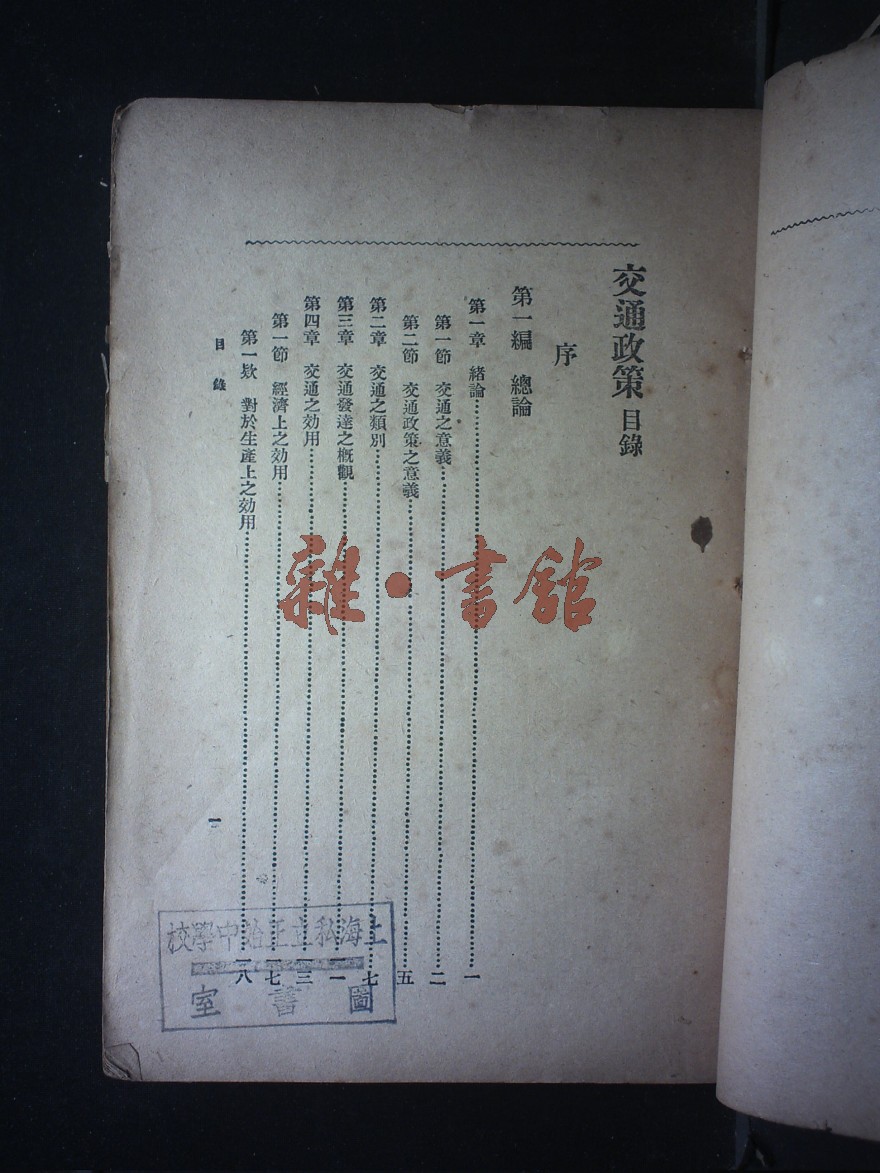 交通政策 目錄
序
第一編 總論
第一章 緒論……一
第一節 交通之意義……二
第二節 交通政策之意義……五
第二章 交通之類別……七
第三章 交通發達之概觀……一一
第四章 交通之効用……一三
第一節 經濟上之効用……一七
第一欵 對於生產上之効用……一八
目錄
一
雜·書館
上海私立正始中學校
圖書室